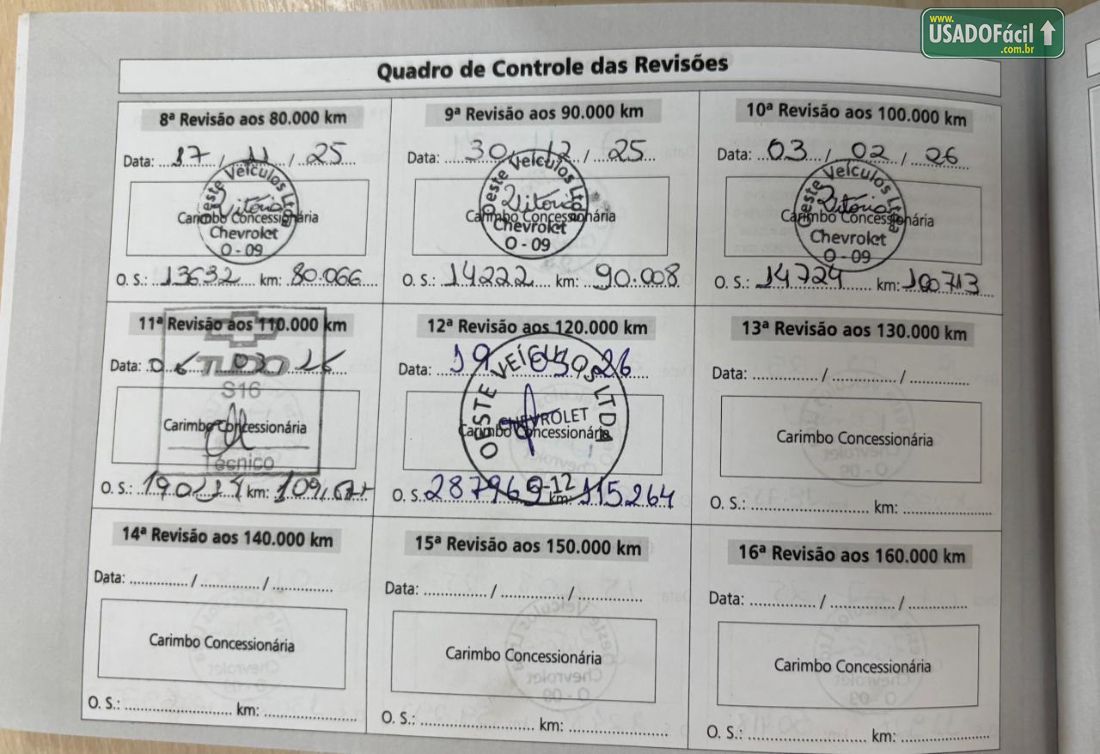 www.
USADOFácil
.com.br
Quadro de Controle das Revisões
8ª Revisão aos 80.000 km
Data: 17 / 11 / 25
Oeste Veículos Ltda
Vitória
Carimbo Concessionária
Chevrolet
O - 09
O. S.: 13632 km: 80.066
9ª Revisão aos 90.000 km
Data: 30 / 12 / 25
Oeste Veículos Ltda
Vitória
Carimbo Concessionária
Chevrolet
O - 09
O. S.: 14222 km: 90.008
10ª Revisão aos 100.000 km
Data: 03 / 02 / 26
Oeste Veículos Ltda
Vitória
Carimbo Concessionária
Chevrolet
O - 09
O. S.: 14724 km: 100713
11ª Revisão aos 110.000 km
Data: 06 / 03 / 26
S16
Carimbo Concessionária
Técnico
O. S.: km:
12ª Revisão aos 120.000 km
Data: 19 26
OESTE VEÍCULOS LTDA
CHEVROLET
Carimbo Concessionária
O-12
O. S.: 287969 km: 115264
13ª Revisão aos 130.000 km
Data: / /
Carimbo Concessionária
O. S.: km:
14ª Revisão aos 140.000 km
Data: / /
Carimbo Concessionária
O. S.: km:
15ª Revisão aos 150.000 km
Data: / /
Carimbo Concessionária
O. S.: km:
16ª Revisão aos 160.000 km
Data: / /
Carimbo Concessionária
O. S.: km: